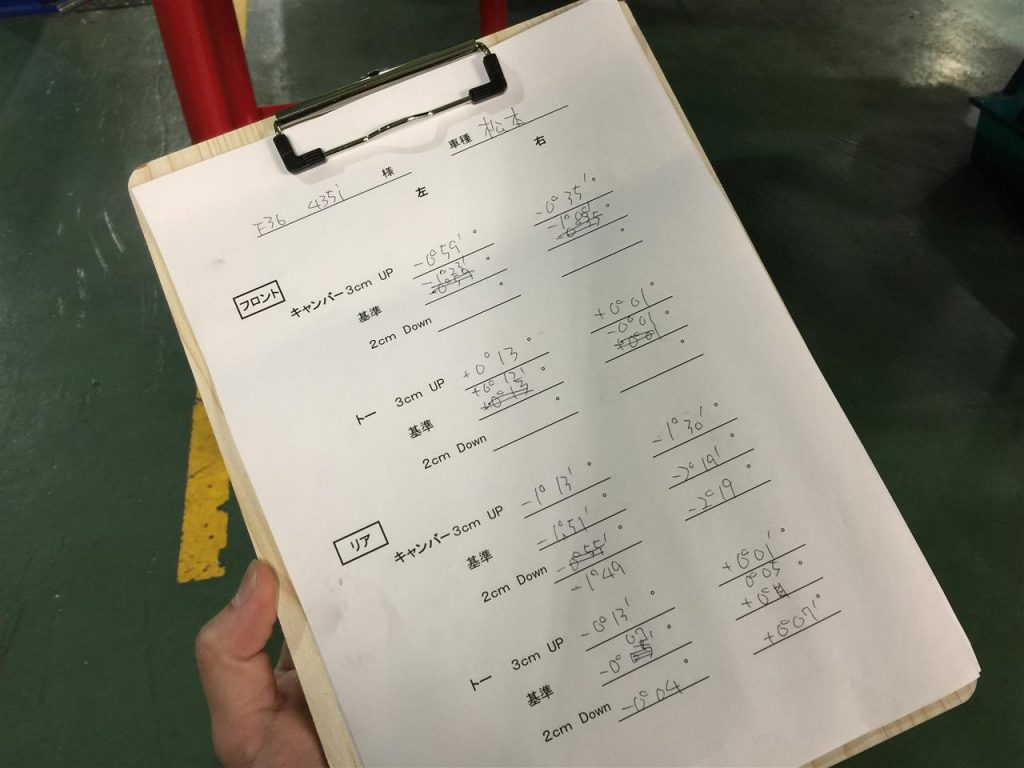 F36 435i 様 車種 松本
左 右
フロント
キャンバー 3cm UP -0°59′ ° -0°35′ °
基準 -1°23′ °
2cm Down ° °
トー 3cm UP +0°13 ° +0°01′ °
基準 +0°12′ ° -0°01 °
2cm Down ° °
リア
キャンバー 3cm UP -1°13′ ° -1°30′ °
基準 -1°51′ ° -2°19′ °
2cm Down -1°49 ° -2°19 °
トー 3cm UP -0°13′ ° +0°01′ °
基準 -0°07′ ° +0°05 °
2cm Down -0°04 ° +0°07′ °